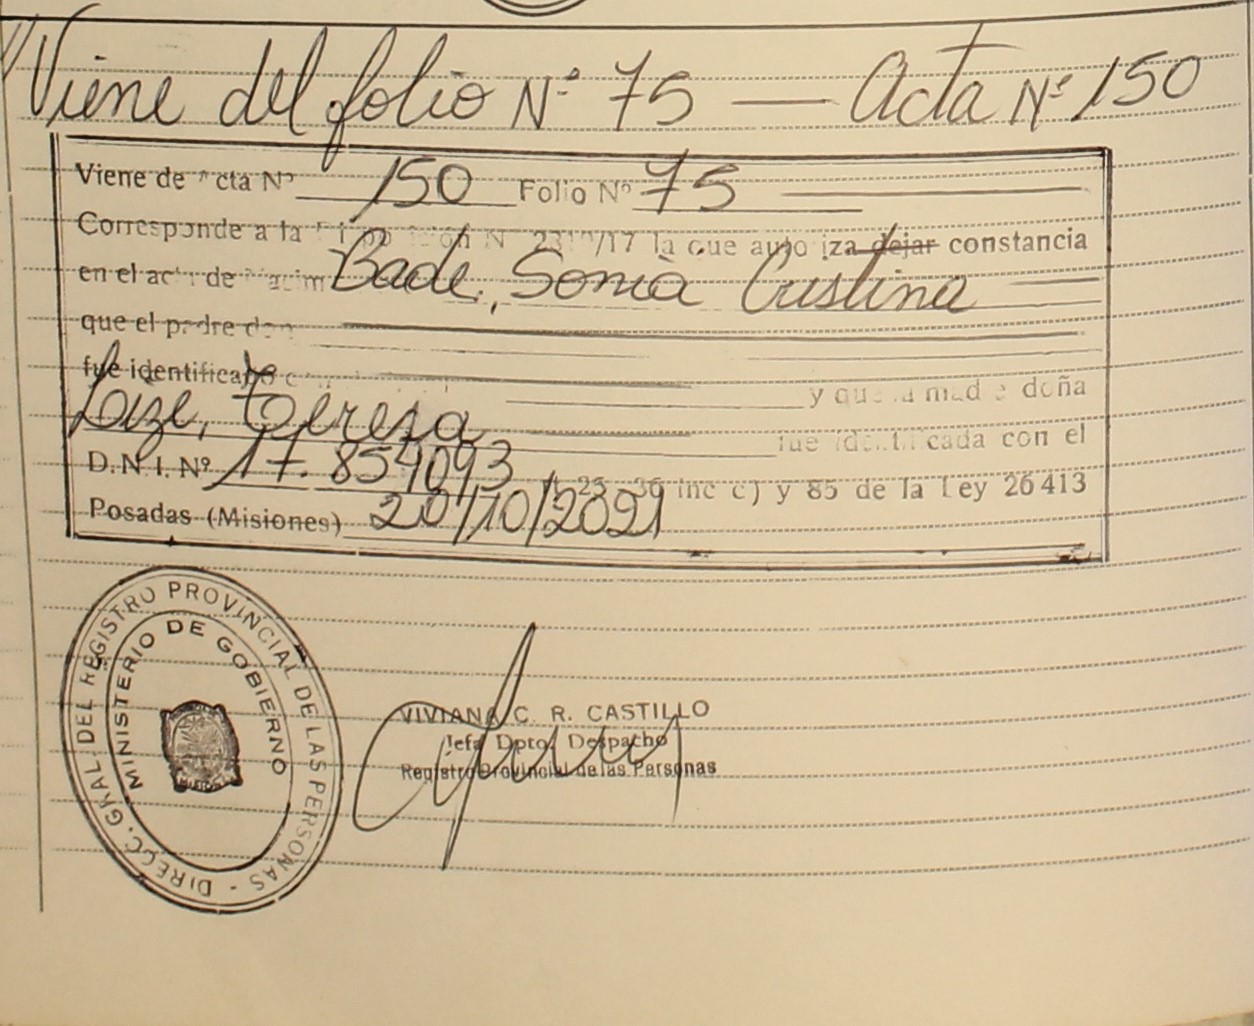 Viene del folio Nº 75 — Acta Nº 150
Viene de Acta Nº 150 Folio Nº 75
Corresponde a la Nº /17 la que autoriza dejar constancia
en el acta de Bade, Sonia Cristina
que el padre don
fue identificado
y que la madre doña
Loize, Tereza
fue identificada con el
D.N.I. Nº 17.854093 inc c) y 85 de la Ley 26413
Posadas (Misiones) 20/10/2021
DIRECC. GRAL. DEL REGISTRO PROVINCIAL DE LAS PERSONAS -
MINISTERIO DE GOBIERNO
VIVIANA C. R. CASTILLO
Jefa Dpto. Despacho
Registro Provincial de las Personas